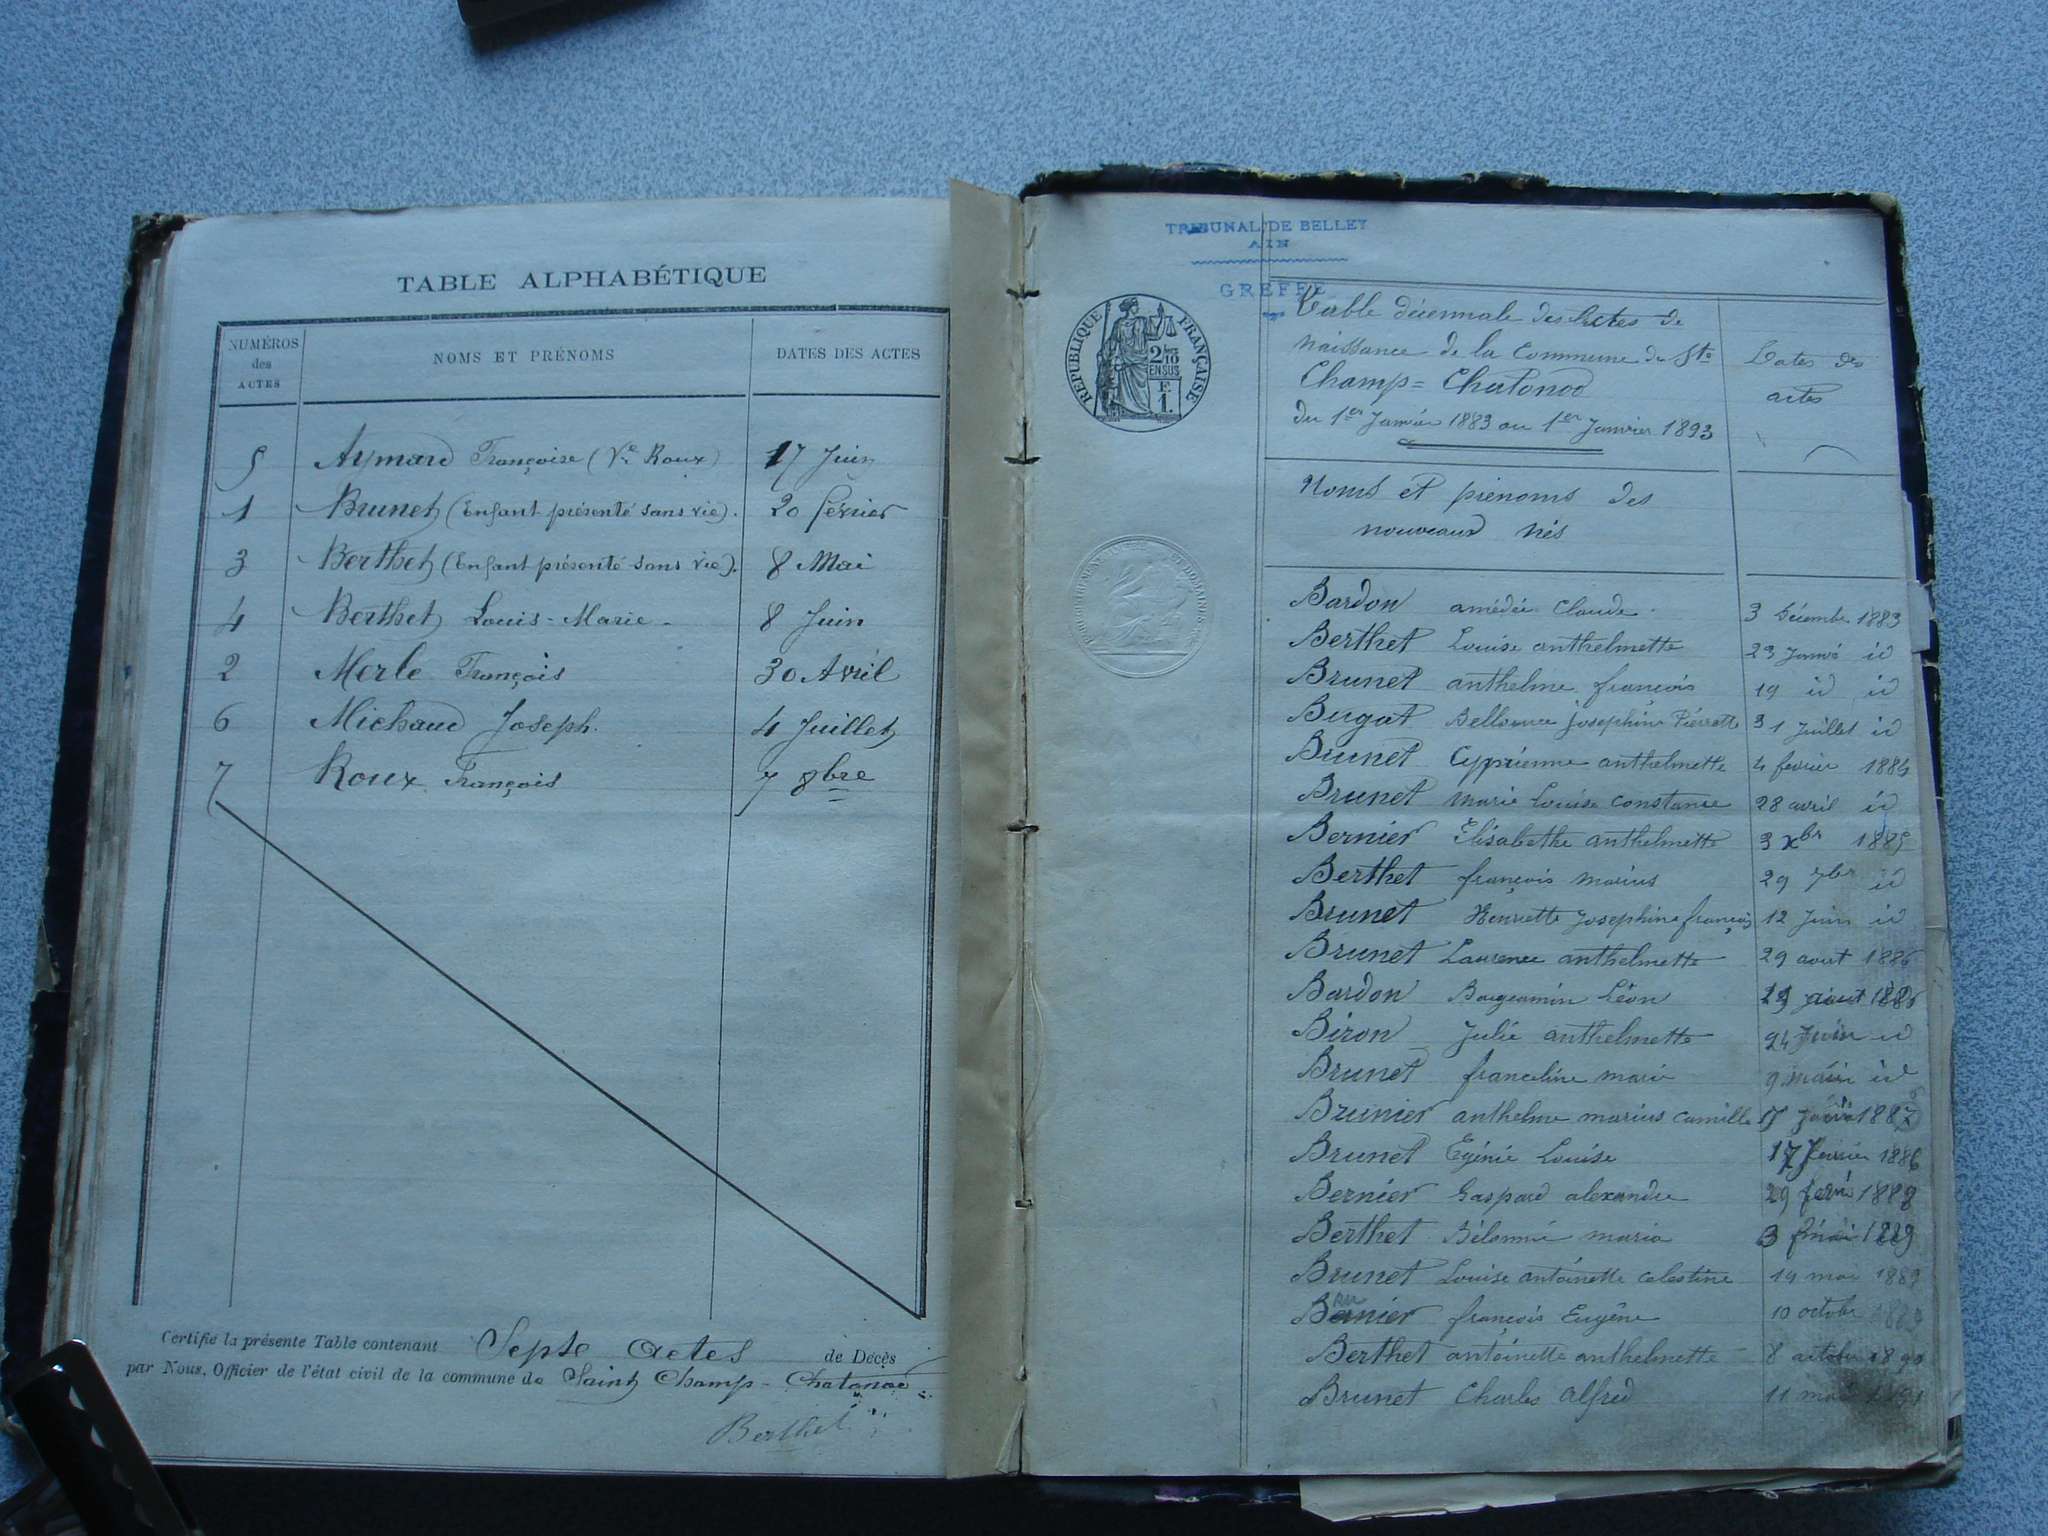 TABLE ALPHABÉTIQUE
NUMÉROS des ACTES NOMS ET PRÉNOMS DATES DES ACTES
5 Aymard Françoise (Ve Roux) 17 Juin
1 Brunet (Enfant présenté sans vie). 20 février
3 Berthet (Enfant présenté sans vie). 8 Mai
4 Berthet Louis-Marie 8 Juin
2 Merle François 30 Avril
6 Michaud Joseph. 4 Juillet
7 Roux François 7 8bre
Certifié la présente Table contenant Septe actes de Décès
par Nous, Officier de l'état civil de la commune de Saint Champ-Chatonod
Berthet
TRIBUNAL DE BELLEY
AIN
GREFFE
RÉPUBLIQUE FRANÇAISE
2/10 EN SUS
F. 1.
Table décennale des Actes de
naissance de la Commune de St
Champ=Chatonod
du 1er Janvier 1883 au 1er Janvier 1893
Dates des
actes
Noms et prénoms des
nouveaux nés
Bardon amédée Claude 3 Décembre 1883
Berthet Louise anthelmette 23 Janvé id
Brunet anthelme françois 19 id id
Bugat Josephine Pierrette 31 Juillet id
Brunet Cyprienne anthelmette 4 fevrier 1884
Brunet Marie Louise Constance 28 avril id
Bernier Elisabethe anthelmette 3 Xbr 1885
Berthet françois marius 29 7br id
Brunet Henriette Josephine françois 12 Juin id
Brunet Laurence anthelmette 29 aout 1886
Bardon Léon aout 1886
Biron Julie anthelmette 24 Juin id
Brunet franceline marie 9 id
Brunier anthelme marius Camille 17
Brunet Egénie Louise 17 Fevrier 1886
Bernier Gaspard alexandre 29 1888
Berthet marie 3 1889
Brunet Louise antoinette celestine 19 mai 1889
Bernier françois Eugène 10 octobre
Berthet antoinette anthelmette 8 octobre
Brunet Charles Alfred 11